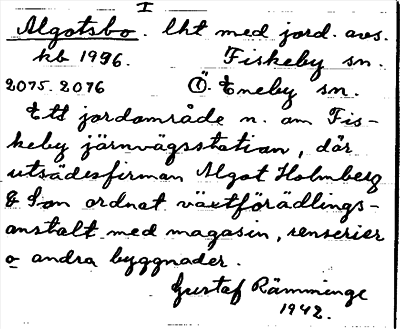 I
Algotsbo. lht med jord. avs.
kb 1996. Fiskeby sn.
2075. 2076 Ö. Eneby sn.
Ett jordområde n. om Fis-
keby järnvägsstation, där
utsädesfirman Algot Holmberg
& Son ordnat växtförädlings-
anstalt med magasin, renserier
o andra byggnader.
Gustaf Rämminge
1942.